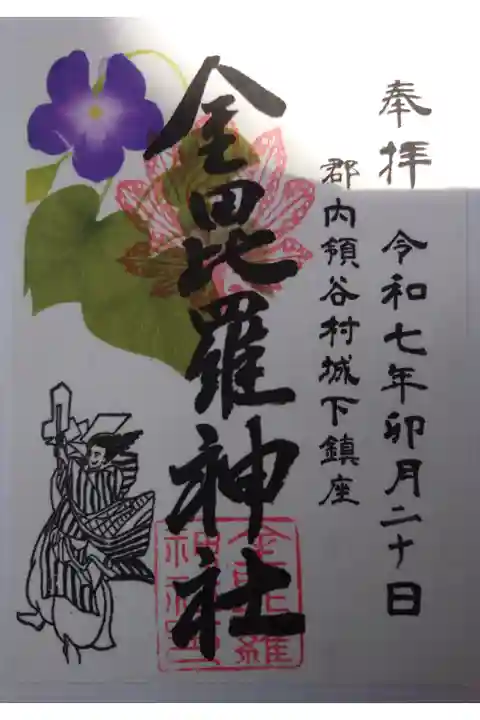 奉拝 令和七年卯月二十日
郡内領谷村城下鎮座
金毘羅神社